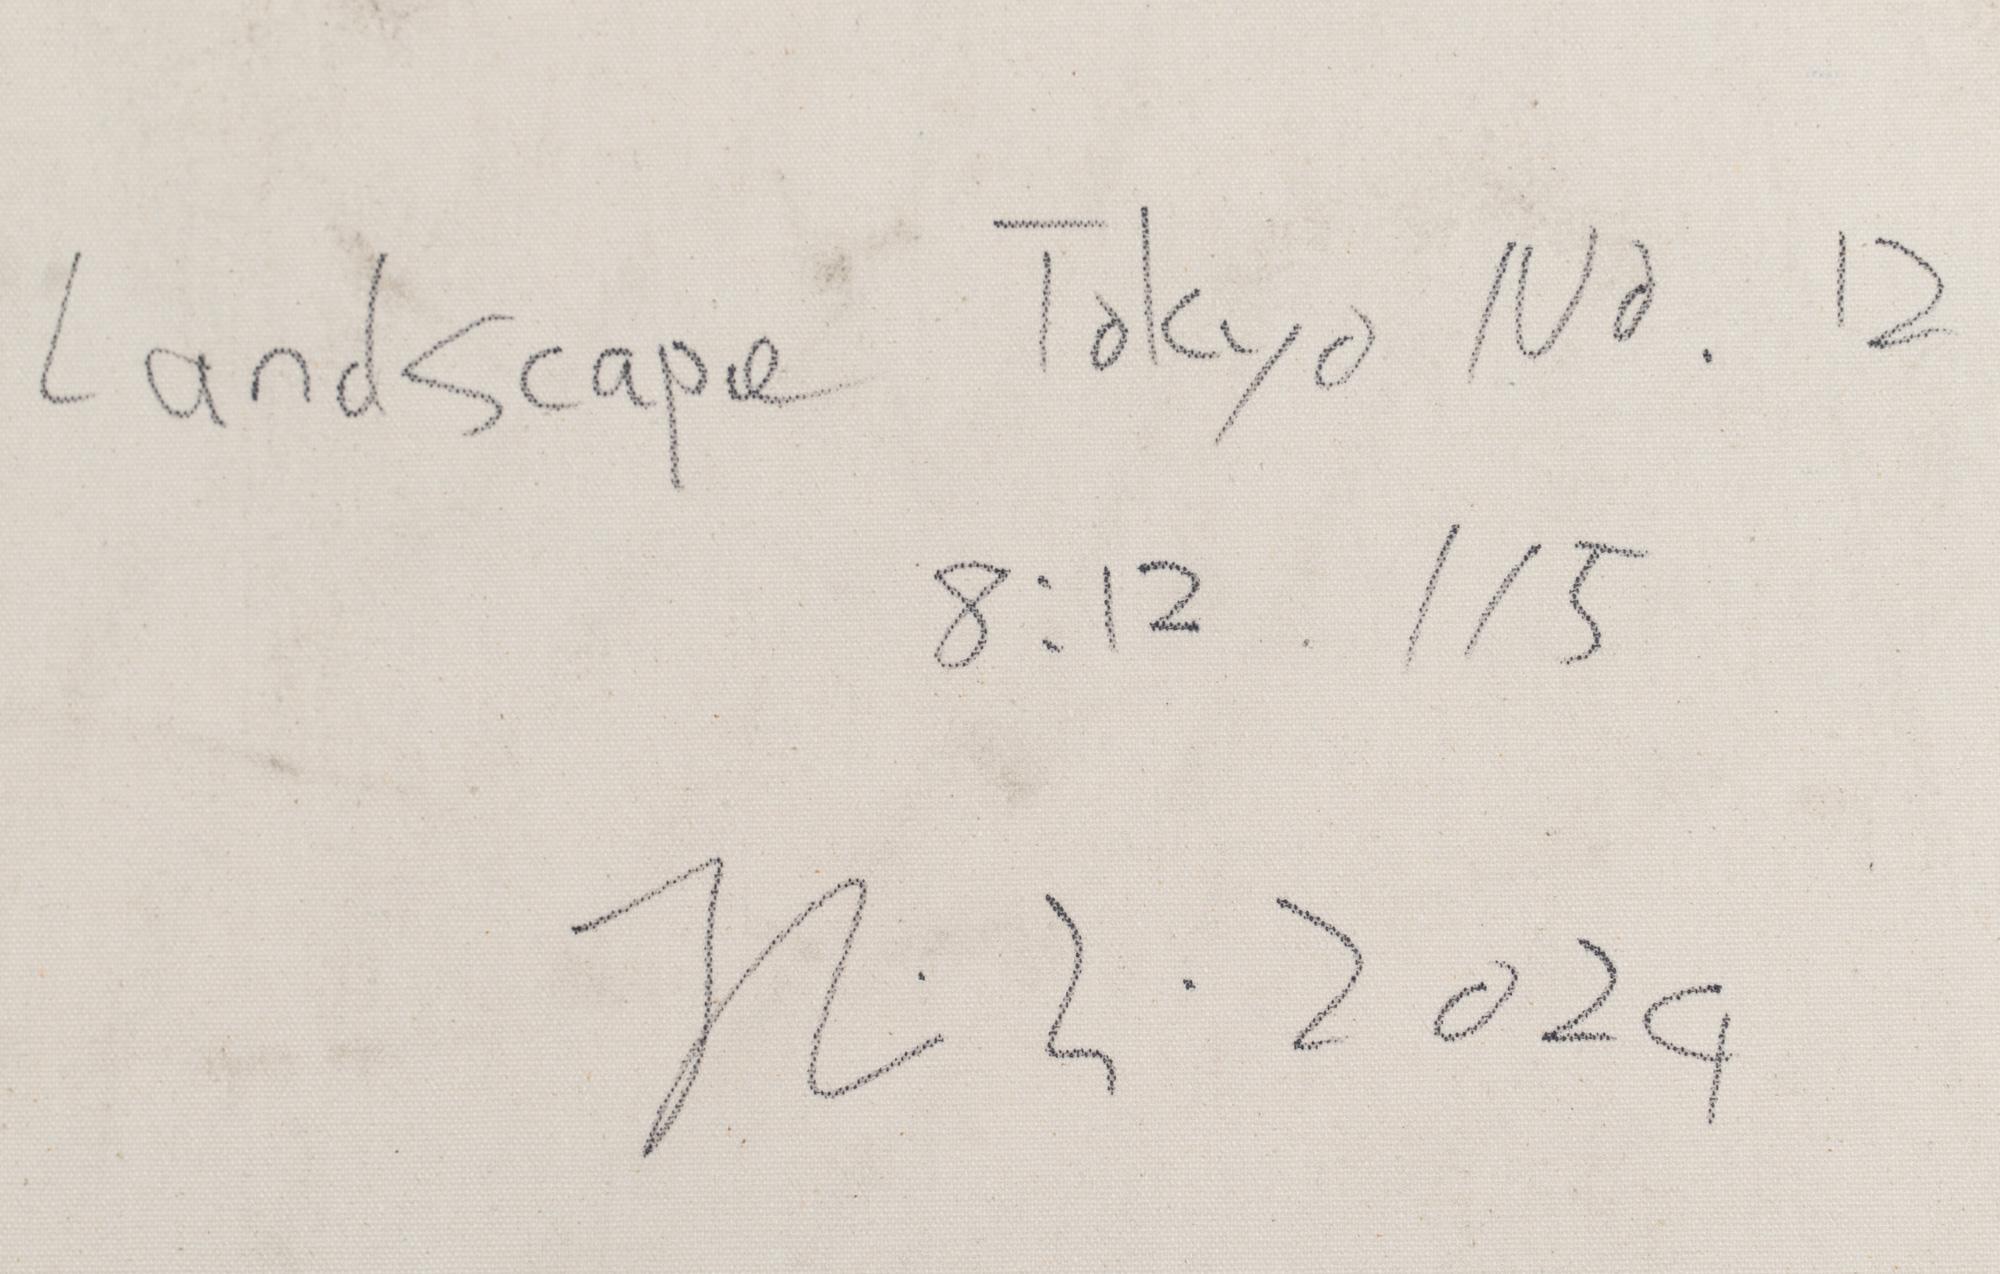 Landscape Tokyo No. 12
8:12. 115
H. L. 2024